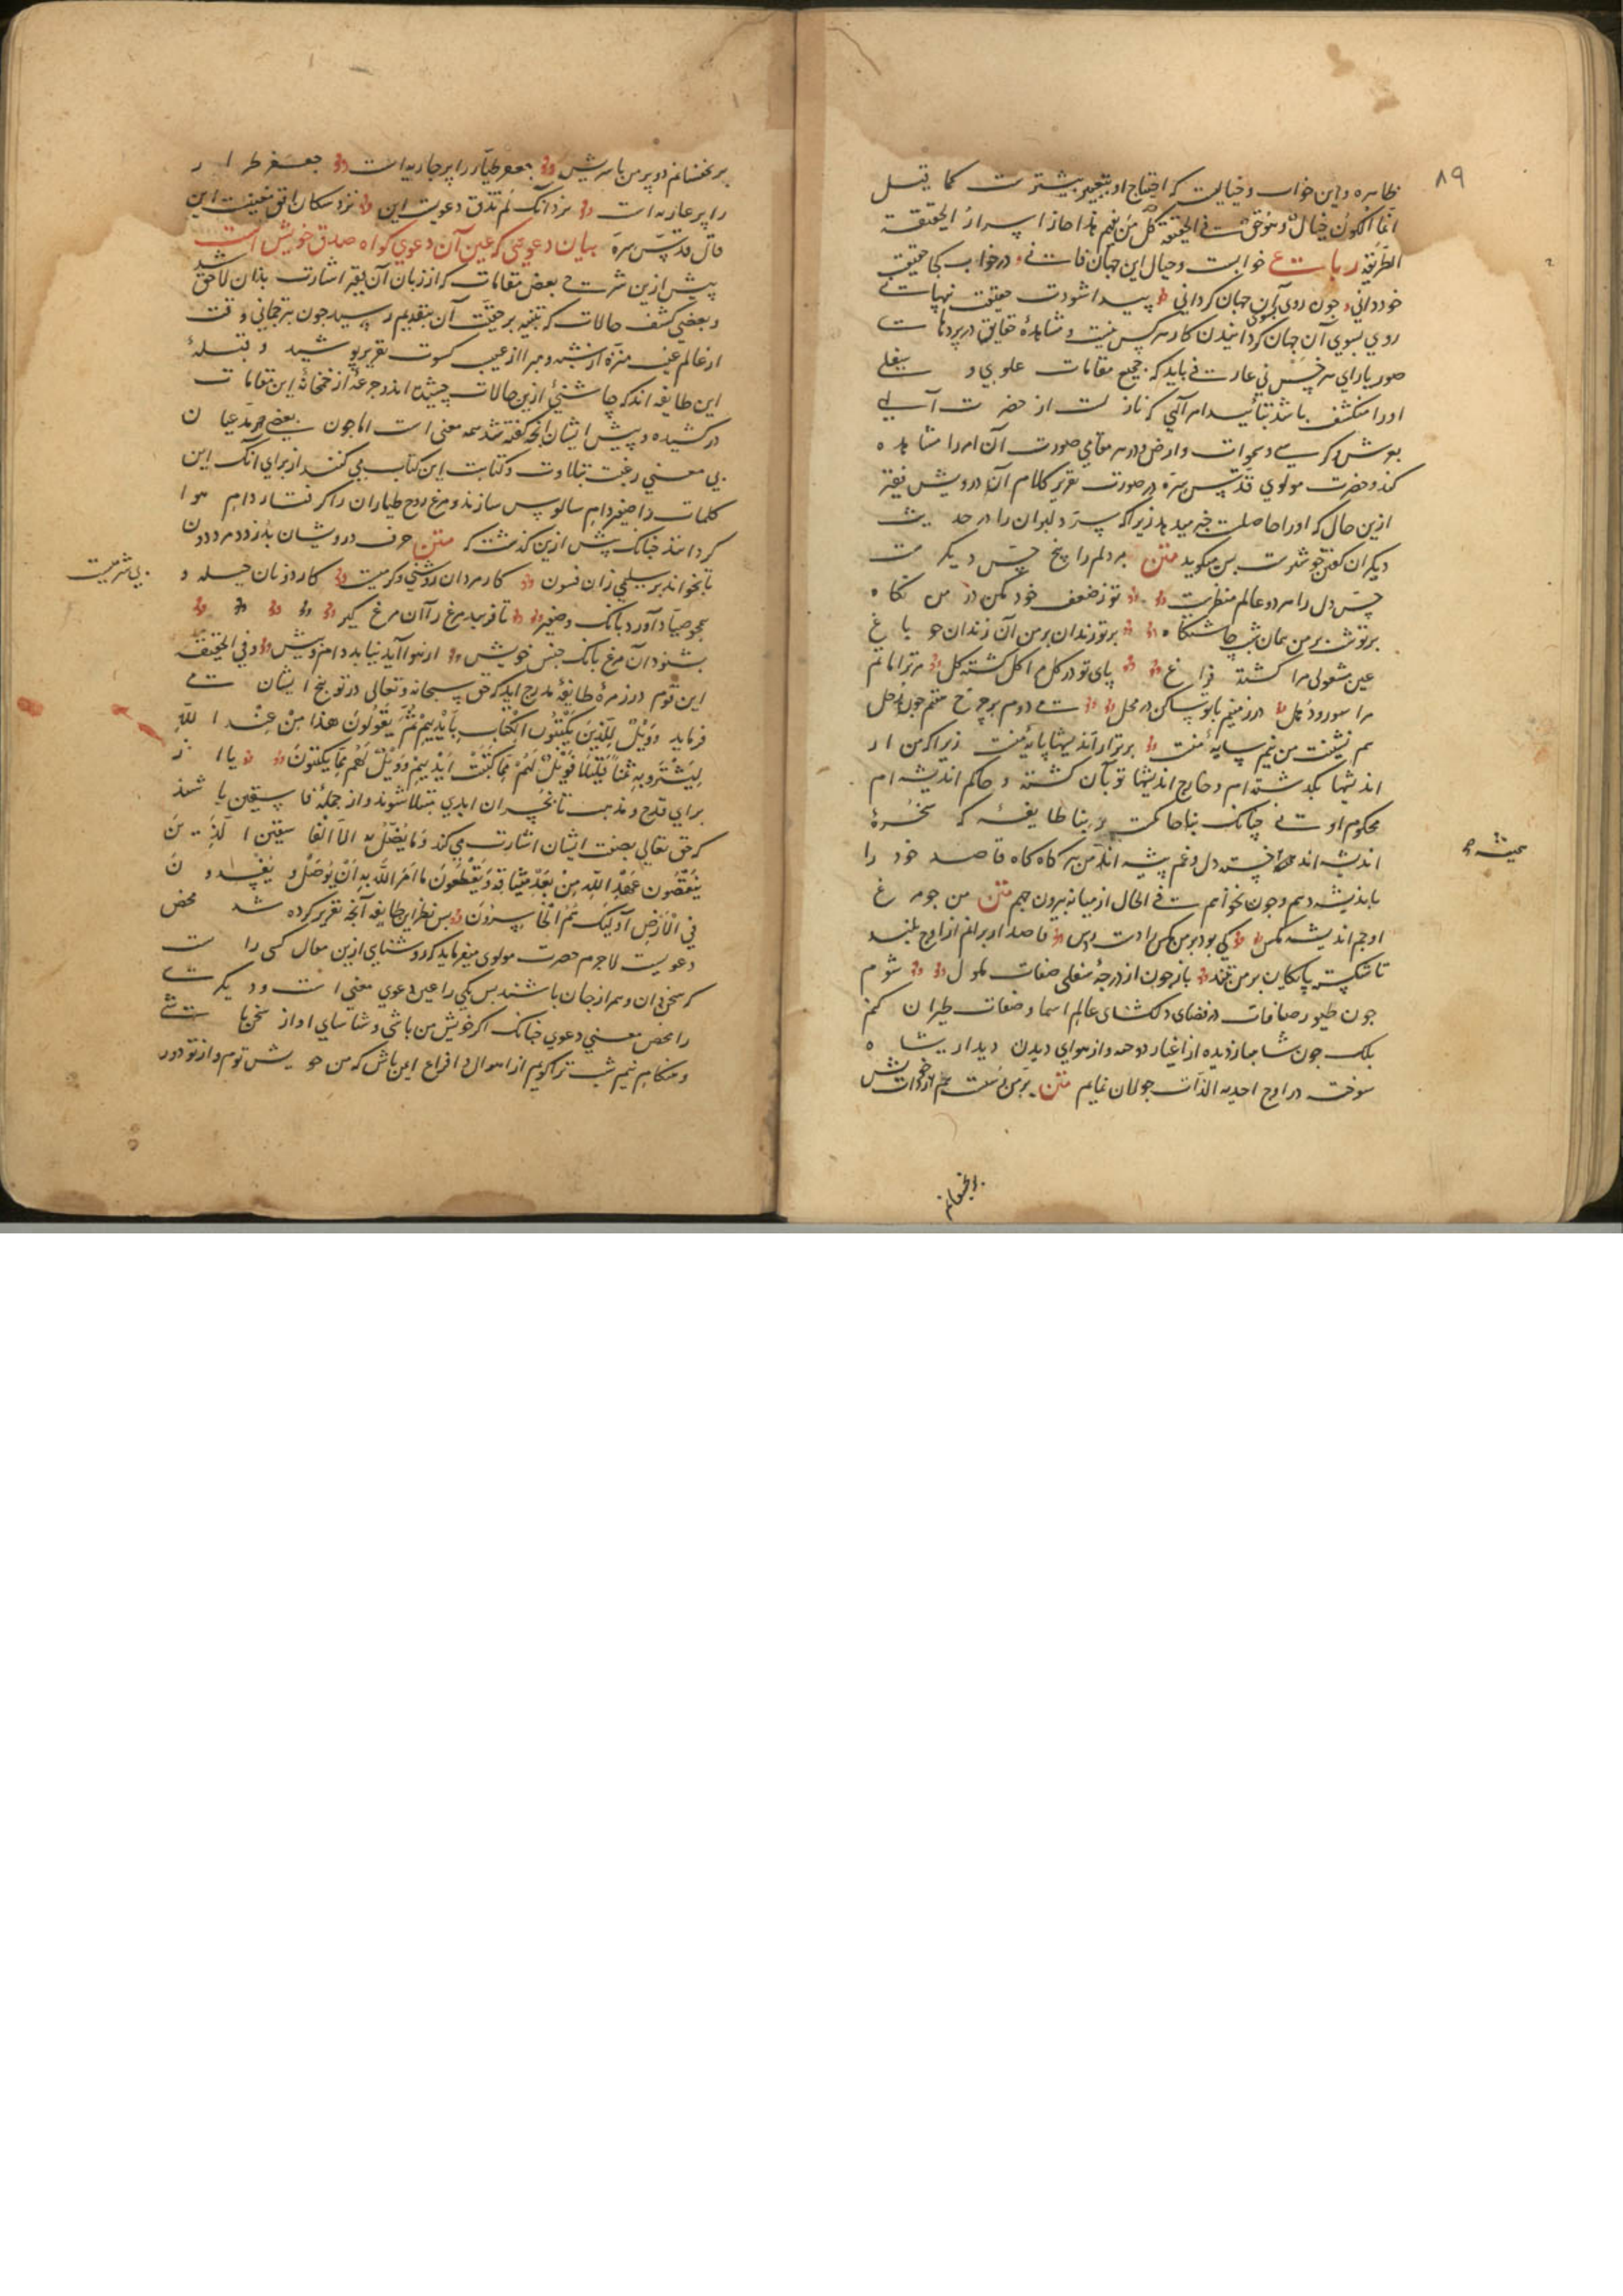 ۸۹
ظاهره و این خواب و خیالیست که احتیاج او بتعبیر بیشترست کما قیل
انما الکون خیال و هو حق فی الحقیقة کل من فهم هذا حاز اسرار الحقیقة
الطریقه رباعی خوابست و خیال این جهان فانی در خواب کجا حقیقت
خود دانی چون روی بسوی آن جهان گردانی پیدا شودت حقیقت پنهانی
روی بسوی آن جهان گردانیدن کار هر کس نیست و مشاهدهٔ حقایق در پردهای
صور یارای هر خس نی عارفی باید که جمیع مقامات علوی و سفلی
او را منکشف باشد بتأئید امر آلهی که نازلست از حضرت آلهی
بعرش و کرسی و سموات و ارض و در هر مقامی صورت آن امر را مشاهده
کند و حضرت مولوی قدس سره در صورت تقریر کلام آن درویش فقیر
ازین حال که او را حاصلست خبر میدهد زیرا که سر دلبران را در حدیث
دیگران گفتن خوشترست پس میگوید متن هر دلم را پنج حس دیگرست
حس دل را هر دو عالم منظرست تو ز ضعف خود مکن در من نگاه
بر تو شب بر من همان شب چاشتگاه بر تو زندان بر من آن زندان چو باغ
عین مشغولی مرا گشته فراغ پای تو در گل مرا گل گشته گل مر ترا ماتم
مرا سور و دهل در زمینم با تو ساکن در محل می‌دوم بر چرخ هفتم چون زحل
هم‌نشینت من نیم سایهٔ منست برتر از اندیشها پایهٔ منست زیرا که من از
اندیشها بگذشته‌ام و خارج اندیشها پویان گشته و حاکم اندیشه‌ام
محکوم او نی چنانک بنا حاکمست بر بنا طایفهٔ که سخرهٔ
اندیشه‌اند خسته دل و غم پیشه‌اند من هر گاه گاه قاصد خود را
باندیشه دهم و چون بخواهم فی الحال از میانه بیرون جهم متن من چو مرغ
اوجم اندیشه مگس کی بود بر من مگس را دست رس قاصدا زیر آیم از اوج بلند
تا شکسته پایگان بر من تنند باز چون از درجهٔ سفلی صفات ملول شوم
چون طیور صافات در فضای دلگشای عالم اسما و صفات طیران کنم
بلک چون شاهباز دیده از اغیار دوخته و از هوای دیدن دیدار شاه
سوخته در اوج احدیه الذات جولان نمایم متن پر من رستست هم از ذات خویش
بر نچفسانم دو پر من با سریش جعفر طیار را پر جاریه است جعفر طرار
را پر عاریه است نزد آنک لم یذق دعویست این نزد سکان افق معنیست این
قال قدس سره بیان دعویی که عین آن دعوی گواه صدق خویش است
پیش ازین شرح بعض مقامات که از زبان آن فقیر اشارت بذان لاحق شد
و بعضی کشف حالات که
از عالم غیب منزه از شبه و مبرا از عیب کسوت تقریر پوشید و بنسبة
این طایفه‌اند که چاشنیٔ ازین حالات چشیده‌اند و جرعهٔ از خمخانهٔ این مقامات
در کشیده و پیش ایشان انچه گفته شد همه معنی است اما چون بعضی مدعیان
بی معنی رغبت بتلاوت و کتابت این کتاب می کنند از برای آنک این
کلمات را صفیر دام سالوس سازند و مرغ روح طیاران را گرفتار دام هوا
گردانند چنانک پیش ازین گذشت که متن حرف درویشان بدزدد مرد دون
تا بخواند بر سلیمی زان فسون کار مردان روشنی و گرمیست کار دونان حیله و
بی شرمیست
همچو صیاد آورد بانک صفیر تا فریبد مرغ را آن مرغ گیر
بشنود آن مرغ بانک جنس خویش از هوا آید بیابد دام و نیش و فی الحقیقة
این قوم در زمرهٔ طایفهٔ مدرج‌اند که حق سبحانه و تعالی در توبیخ ایشان می
فرماید فَوَيْلٌ لِلَّذِينَ يَكْتُبُونَ الْكِتَابَ بِأَيْدِيهِمْ ثُمَّ يَقُولُونَ هذا مِنْ عِنْدِ اللَّهِ
لِيَشْتَرُوا بِهِ ثَمَنًا قَلِيلًا فَوَيْلٌ لَهُمْ مِمَّا كَتَبَتْ أَيْدِيهِمْ وَوَيْلٌ لَهُمْ مِمَّا يَكْسِبُونَ یا از
برای قدح و مذمت تا بخسران ابدی مبتلا شوند و از جملهٔ فاسقین باشند
که حق تعالی بصفت ایشان اشارت می کند وَمَا يُضِلُّ بِهِ إِلَّا الْفَاسِقِينَ الَّذِينَ
يَنْقُضُونَ عَهْدَ اللَّهِ مِنْ بَعْدِ مِيثَاقِهِ وَيَقْطَعُونَ مَا أَمَرَ اللَّهُ بِهِ أَنْ يُوصَلَ وَيُفْسِدُونَ
فِي الْأَرْضِ أُولَئِكَ هُمُ الْخَاسِرُونَ پس نظر این طایفه آنچه تقریر کرده شد محض
دعویست لاجرم حضرت مولوی میفرماید که روشنای ازین مقال کسی راست
که سخن دان و همراز جان باشند پس یکی را عین دعوی معنی است و دیگری
را محض معنی دعوی چنانک اگر خویش من باشی و شناسای آواز سخن ما
و هنگام نیم شب ترا گویم از اهوال و افزاع ایمن باش که من خویش توم و از تو دور
بر نچفسانم